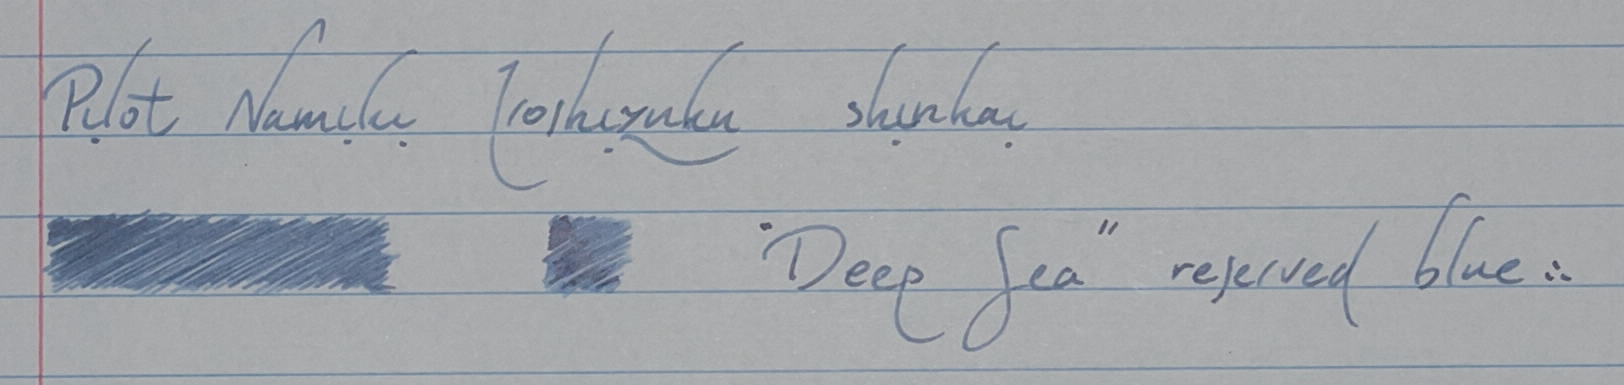 Pilot Namiki Iroshizuku shinkai
"Deep Sea" reserved blue ∴